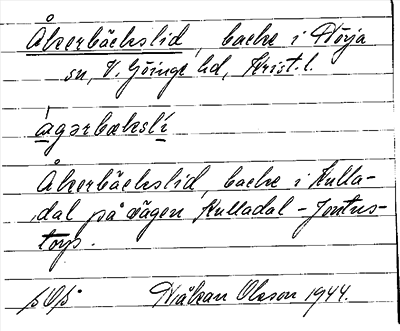 Åkerbäckslid, backe i Nörja
sn, V. Göinge hd, Krist. l.
ågərbækslí
Åkerbäckslid, backe i Kulla-
dal på vägen Kulladal - Jontus-
torp.
Håkan Olsson 1944.